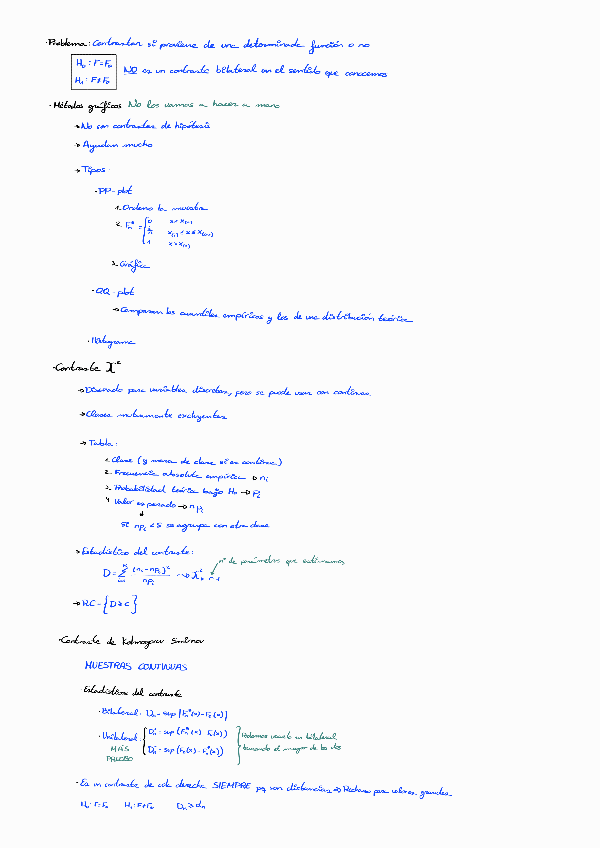 ·Problema: Contrastar si proviene de una determinada función o no
H₀: F=F₀
H₁: F≠F₀
NO es un contraste bilateral en el sentido que conocemos
·Métodos gráficos No los vamos a hacer a mano
→No son contrastes de hipótesis
→Ayudan mucho
→Tipos:
·PP-plot
1.Ordeno la muestra
2. Fn* = { 0 x<x(1)
x(i) ≤ x ≤ x(i+1)
1 x>x(n)
3.Gráfico
·QQ-plot
→Comparan los cuantiles empíricos y los de una distribución teórica
·Histograma
·Contraste χ²
→Diseñado para variables discretas, pero se puede usar con continuas.
→Clases mutuamente excluyentes
→Tabla:
1.Clase (y marca de clase si es continua)
2.Frecuencia absoluta empírica → nᵢ
3.Probabilidad teórica bajo H₀ → pᵢ
4 Valor esperado → npᵢ
↓
Si npᵢ <5 se agrupa con otra clase
→Estadístico del contraste:
nº de parámetros que estimamos
D = Σ (nᵢ-npᵢ)²/npᵢ → χ²
→RC={D≥c}
·Contraste de Kolmogorov Smirnov
MUESTRAS CONTINUAS
Estadísticos del contraste
·Bilateral: Dn=sup|Fn*(x)-F₀(x)|
·Unilateral: Dn⁺=sup(Fn*(x)-F₀(x))
MÁS Dn⁻=sup(F₀(x)-Fn*(x))
Podemos usarlo en bilateral
tomando el mayor de los dos
·Es un contraste de cola derecha SIEMPRE pq son distancias ⇒ Rechazo para valores grandes
H₀: F=F₀ H₁: F≠F₀ Dn ≥ dn